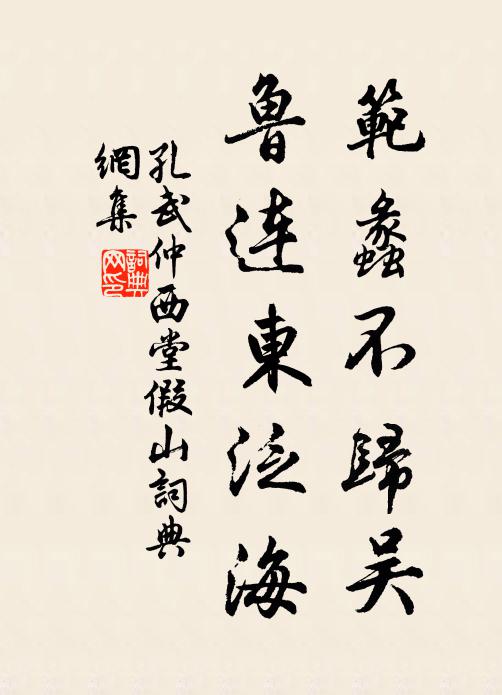 範蠡不歸吴
魯連東泛海
孔武仲西堂假山詞典
網集
詞典网印